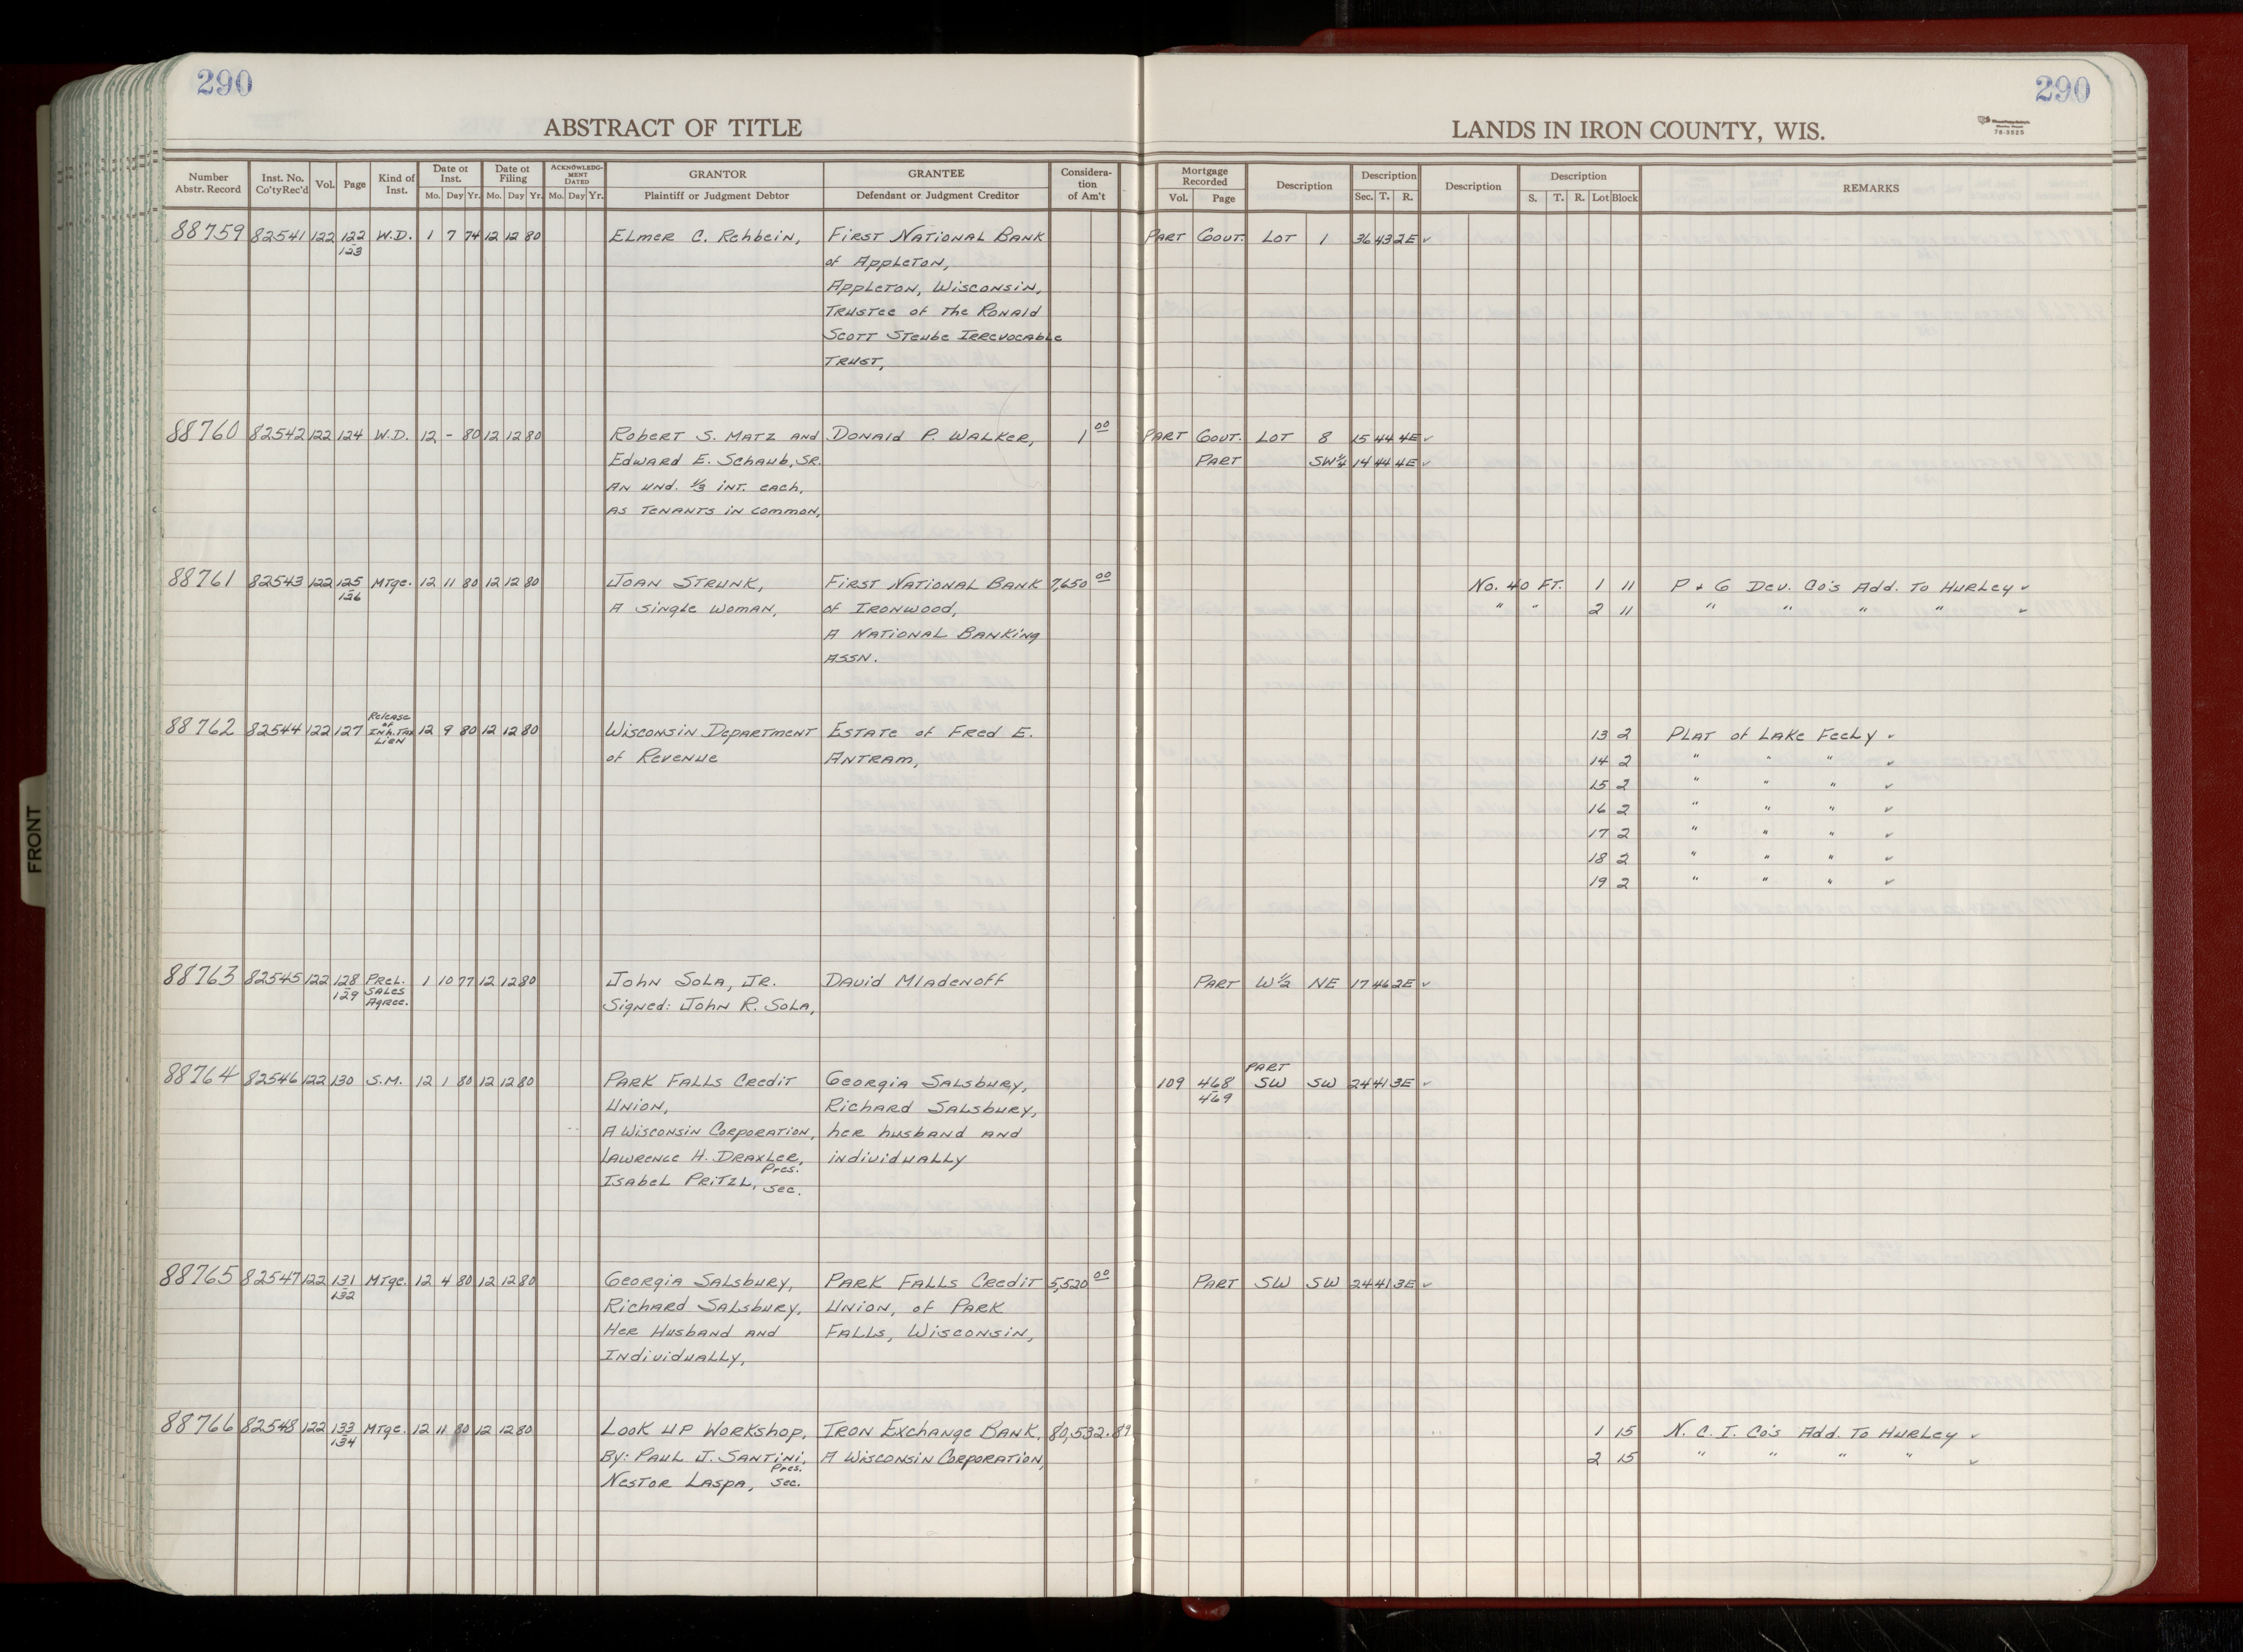 290
290
ABSTRACT OF TITLE
LANDS IN IRON COUNTY, WIS.
78-3525
Number Abstr. Record | Inst. No. Co'tyRec'd | Vol. | Page | Kind of Inst. | Date of Inst. Mo. Day Yr. | Date of Filing Mo. Day Yr. | ACKNOWLEDGMENT DATED Mo. Day Yr. | GRANTOR Plaintiff or Judgment Debtor | GRANTEE Defendant or Judgment Creditor | Consideration of Am't | Mortgage Recorded Vol. Page | Description | Description Sec. T. R. | Description | Description S. T. R. Lot Block | REMARKS
88759 82541 122 122 W.D. 1 7 74 12 12 80 Elmer C. Rehbein, First National Bank Part Gout. Lot 1 36 43 2E ✓
123 of Appleton,
Appleton, Wisconsin,
Trustee of the Ronald
Scott Steube Irrevocable
Trust,
88760 82542 122 124 W.D. 12 - 80 12 12 80 Robert S. Matz and Donald P. Walker, 1 00 Part Gout. Lot 8 15 44 4E ✓
Edward E. Schaub, Sr. Part SW¼ 14 44 4E ✓
an und. ⅓ int. each,
as tenants in common,
88761 82543 122 125 Mtge. 12 11 80 12 12 80 Joan Strunk, First National Bank 7,650 00 No. 40 Ft. 1 11 P & G Dev. Co's Add. To Hurley ✓
126 a single woman, of Ironwood, " " 2 11 " " " " ✓
a National Banking
Assn.
88762 82544 122 127 Release of Inh. Tax Lien 12 9 80 12 12 80 Wisconsin Department Estate of Fred E. 13 2 Plat of Lake Feely ✓
of Revenue Antram, 14 2 " " " ✓
15 2 " " " ✓
16 2 " " " ✓
17 2 " " " ✓
18 2 " " " ✓
19 2 " " " ✓
88763 82545 122 128 Prel. 1 10 77 12 12 80 John Sola, Jr. David Mladenoff Part W½ NE 17 46 2E ✓
129 Sales Agree. Signed: John R. Sola,
Part
88764 82546 122 130 S.M. 12 1 80 12 12 80 Park Falls Credit Georgia Salsbury, 109 468 SW SW 24 41 3E ✓
Union, Richard Salsbury, 469
A Wisconsin Corporation, her husband and
Lawrence H. Draxler, Pres. individually
Isabel Pritzl, Sec.
88765 82547 122 131 Mtge. 12 4 80 12 12 80 Georgia Salsbury, Park Falls Credit 5,520 00 Part SW SW 24 41 3E ✓
132 Richard Salsbury, Union, of Park
Her Husband and Falls, Wisconsin,
Individually,
88766 82548 122 133 Mtge. 12 11 80 12 12 80 Look Up Workshop, Iron Exchange Bank, 80,532.89 1 15 N. C. I. Co's Add. To Hurley ✓
134 By: Paul J. Santini, Pres. A Wisconsin Corporation, 2 15 " " " " ✓
Nestor Laspa, Sec.
FRONT